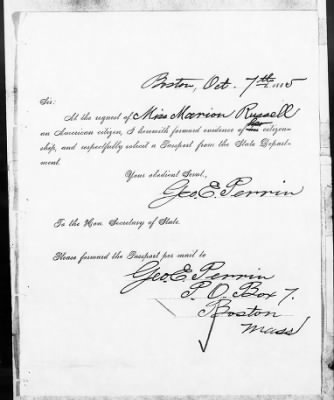 Boston, Oct. 7th
Sir:
At the request of Miss Marion Russell
her
an American citizen, I herewith forward evidence of his citizen-
ship, and respectfully solicit a Passport from the State Depart-
ment.
Your obedient Servt.,
Geo. E. Perrin
To the Hon. Secretary of State.
Please forward the Passport per mail to
Geo. E. Perrin
P. O. Box 7.
Boston
Mass